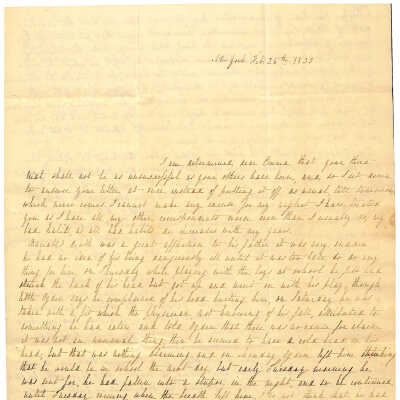 New York Feb. 26th, 1833
I am determined, dear Emma that your third
that shall not be as unsuccessful as your others have been, and so I sit down
to answer your letter at once instead of putting it off as usual, till tomorrow
which never comes. I cannot make any excuse for my neglect I have, treated
you as I have all my other correspondents worse even than I usually do, my
bad habit, as all bad habits do increases with my years.
death was a great affliction to his father it was very sudden
he had no idea of his being dangerously ill until it was too late to do any
thing for him, on Thursday while playing with the boys at school he fell and
struck the back of his head but got up and went on with his play, though
little Ogden says he complained of his head hurting him, on Saturday he was
taken with a fit which the Physician not knowing of his fall, attributed to
something he had eaten and told Ogden that there was no cause for alarm
it was not an unusual thing, then he seemed to have a cold in his
head, but that was nothing alarming and on Monday Ogden left him thinking
that he would be in school the next day but early Tuesday morning he
was sent for, he had fallen into a stupor in the night, and so he continued
until Tuesday evening when the breath left him. I do not think that we had